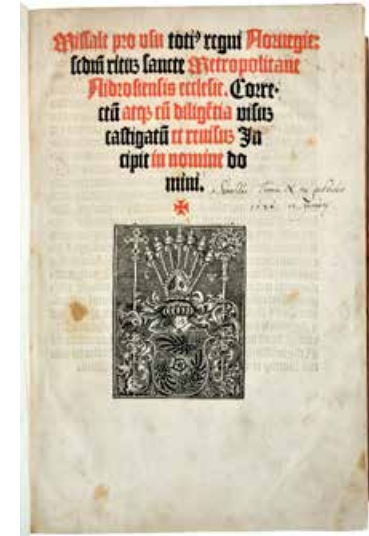 Missale pro vsu totiꝰ regni Noruegie:
scdm̄ rituz sancte Metropolitane
Nidrosiensis ecclesie. Corre-
ctū atqꝫ cū diligētia visuz
castigatū et reuisuz In
cipit in nomine do
mini.